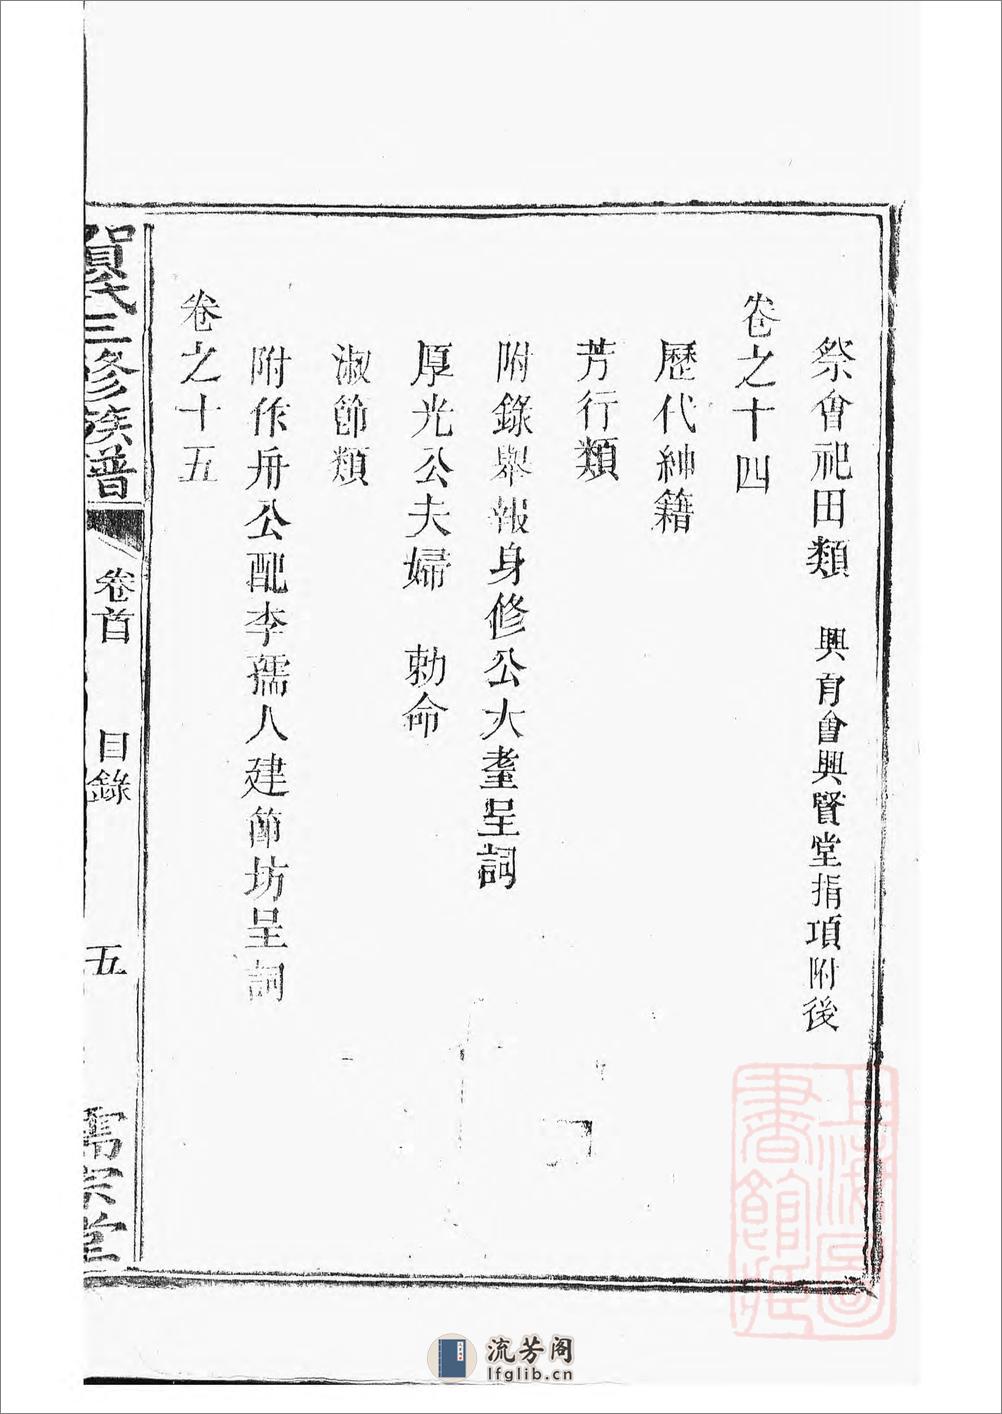 祭會祀田類　興育會興賢堂捐項附後
卷之十四
歷代紳籍
芳行類
附錄舉報身修公大耋呈詞
厚光公夫婦　勅命
淑節類
附作舟公配李孺人建節坊呈詞
卷之十五
賀氏三修族普　卷首　目錄　五　儒宗堂
上海圖書館藏
流芳阁
lfglib.cn